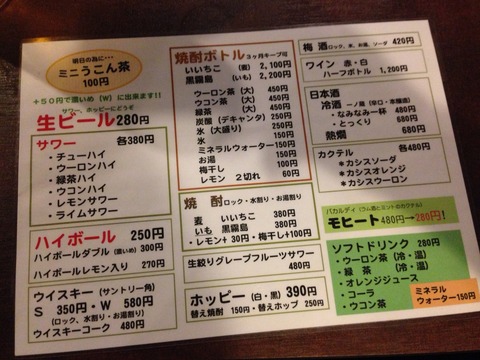 明日の為に・・・
ミニうこん茶
100円
＋５０円で濃いめ（W）に出来ます!!
サワー、ホッピーにどうぞ
生ビール280円
サワー 各380円
・チューハイ
・ウーロンハイ
・緑茶ハイ
・ウコンハイ
・レモンサワー
・ライムサワー
ハイボール 250円
ハイボールダブル（濃いめ）300円
ハイボールレモン入り 270円
ウイスキー（サントリー角）
S 350円・W 580円
（ロック、水割り・お湯割り）
ウイスキーコーク 480円
焼酎ボトル３ヶ月キープ可
いいちこ （麦） 2,100円
黒霧島 （いも） 2,200円
ウーロン茶（大） 450円
ウコン茶（大） 450円
緑茶 （大） 450円
炭酸（デキャンタ） 450円
氷（大盛り） 150円
氷 100円
ミネラルウォーター 150円
お湯 150円
梅干し 100円
レモン ２切れ 60円
焼 酎 ロック・水割り・お湯割り
麦 いいちこ 380円
いも 黒霧島 380円
・レモン＋30円・梅干し＋100円
生絞りグレープフルーツサワー
480円
ホッピー（白・黒）390円
替え焼酎 150円・替えホップ 250円
梅 酒 ロック、水、お湯、ソーダ 420円
ワイン 赤・白
ハーフボトル 1,200円
日本酒
冷酒 一ノ蔵（辛口・本醸造）
・なみなみ一杯 480円
・とっくり 680円
熱燗 680円
カクテル 各480円
＊カシスソーダ
＊カシスオレンジ
＊カシスウーロン
バカルディ（ラム酒とミントのカクテル）
モヒート 480円→280円!
ソフトドリンク 280円
・ウーロン茶（冷・温）
・緑 茶 （冷・温）
・オレンジジュース
・コーラ
・ウコン茶
ミネラル
ウォーター150円